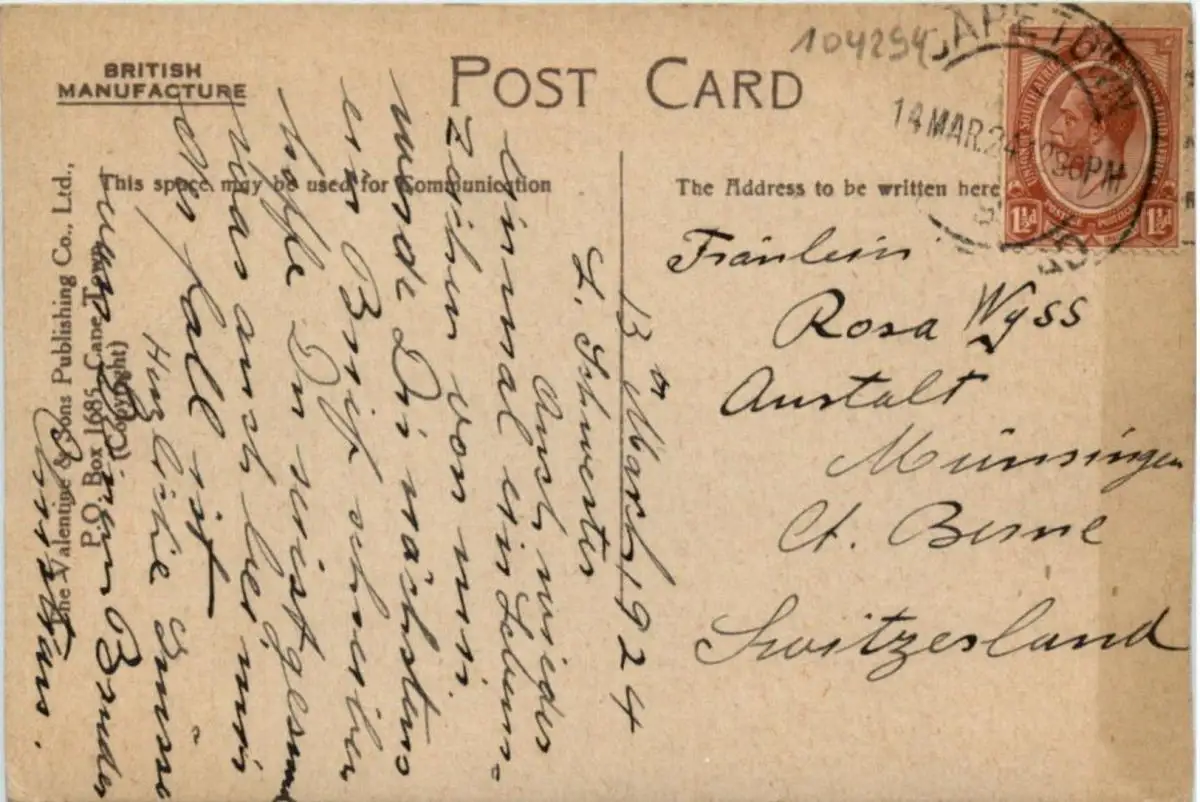 104294
BRITISH
MANUFACTURE
POST CARD
CAPE TOWN
14 MAR. 24 1230PM
UNION OF SOUTH AFRICA
1½d 1½d
This space may be used for Communication
The Address to be written here
13th March 1924
L. Schwester
Auch wieder
einmal ein Lebens-
Zeichen von mir.
werde Dir nächstens
ein Brief schreiben
hoffe Du seist gesund
was auch bei mir
der Fall ist
Herzliche Grüsse
von Deinem Bruder
Christian.
Fräulein
Rosa Wyss
Anstalt
Münsingen
Ct. Berne
Switzerland
The Valentine & Sons Publishing Co., Ltd.,
P.O. Box 1685, Cape Town
(Copyright)